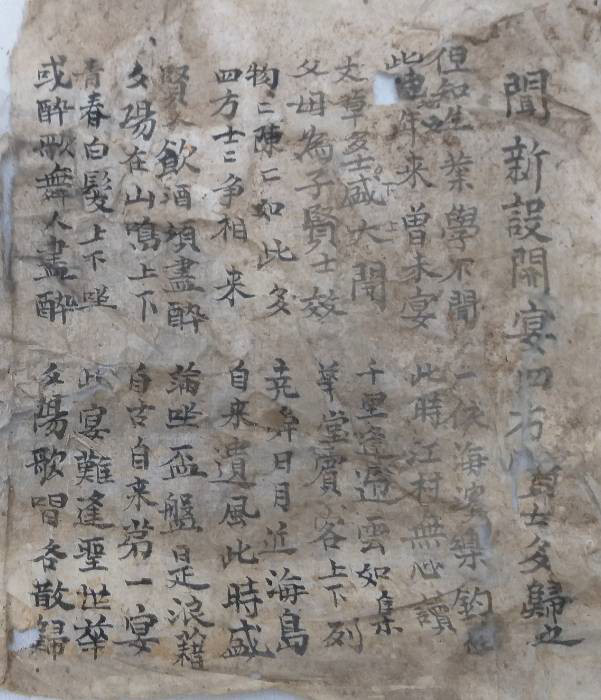 聞新設開宴四方賢士多歸之
但知生業學不聞 一依海家樂釣
此 年來曾未宴 此時江村無心讀
文章多士咸大聞 千里逶迤雲如集
父母為子賢士效 華堂賓客上下列
物二陳二如此多 堯舜日月近海島
四方士二爭相來 自來遺風此時盛
賢人飲酒須盡醉 滿坐盃盤是浪藉
夕陽在山鳴上下 自古自來第一宴
青春白髮上下坐 此宴難逢聖世華
或醉歌舞人盡醉 夕陽歌唱各散歸